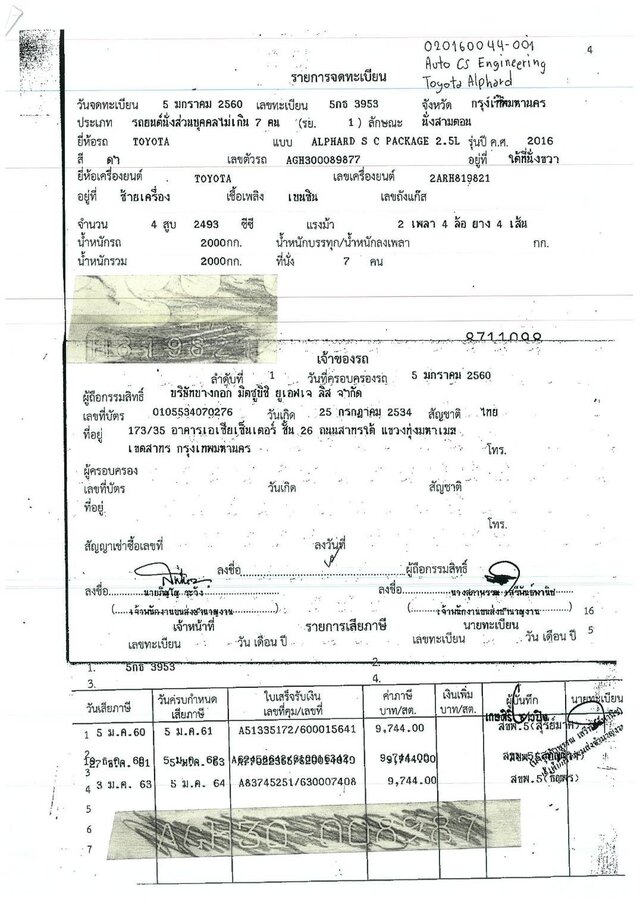 020160044-001
Auto CS Engineering
Toyota Alphard
4
รายการจดทะเบียน
วันจดทะเบียน 5 มกราคม 2560 เลขทะเบียน 5กธ 3953 จังหวัด กรุงเทพมหานคร
ประเภท รถยนต์นั่งส่วนบุคคลไม่เกิน 7 คน (รย. 1) ลักษณะ นั่งสามตอน
ยี่ห้อรถ TOYOTA แบบ ALPHARD S C PACKAGE 2.5L รุ่นปี ค.ศ. 2016
สี ดำ เลขตัวรถ AGH300089877 อยู่ที่ ใต้ที่นั่งขวา
ยี่ห้อเครื่องยนต์ TOYOTA เลขเครื่องยนต์ 2ARH819821
อยู่ที่ ซ้ายเครื่อง เชื้อเพลิง เบนซิน เลขถังแก๊ส
จำนวน 4 สูบ 2493 ซีซี แรงม้า 2 เพลา 4 ล้อ ยาง 4 เส้น
น้ำหนักรถ 2000กก. น้ำหนักบรรทุก/น้ำหนักลงเพลา กก.
น้ำหนักรวม 2000กก. ที่นั่ง 7 คน
H819821
8711098
เจ้าของรถ
ลำดับที่ 1 วันที่ครอบครองรถ 5 มกราคม 2560
ผู้ถือกรรมสิทธิ์ บริษัทบางกอก มิตซูบิชิ ยูเอฟเจ ลีส จำกัด
เลขที่บัตร 0105534070276 วันเกิด 25 กรกฎาคม 2534 สัญชาติ ไทย
ที่อยู่ 173/35 อาคารเอเชียเซ็นเตอร์ ชั้น 26 ถนนสาทรใต้ แขวงทุ่งมหาเมฆ
เขตสาทร กรุงเทพมหานคร โทร.
ผู้ครอบครอง
เลขที่บัตร วันเกิด สัญชาติ
ที่อยู่
โทร.
สัญญาเช่าซื้อเลขที่ ลงวันที่
ลงชื่อ ผู้ถือกรรมสิทธิ์
ลงชื่อ ลงชื่อ
(เจ้าพนักงานขนส่งชำนาญงาน) (เจ้าพนักงานขนส่งชำนาญงาน) 16
เจ้าหน้าที่ รายการเสียภาษี นายทะเบียน
เลขทะเบียน วัน เดือน ปี เลขทะเบียน วัน เดือน ปี 5
1. 5กธ 3953 2.
3. 4.
วันเสียภาษี วันครบกำหนดเสียภาษี ใบเสร็จรับเงิน เลขที่คุม/เลขที่ ค่าภาษี บาท/สต. เงินเพิ่ม บาท/สต. ผู้บันทึก นายทะเบียน
1 5 ม.ค.60 5 ม.ค.61 A51335172/600015641 9,744.00 สขพ.5
2
3
4 3 ม.ค. 63 5 ม.ค. 64 A83745251/630007408 9,744.00 สขพ.5
5
6
7